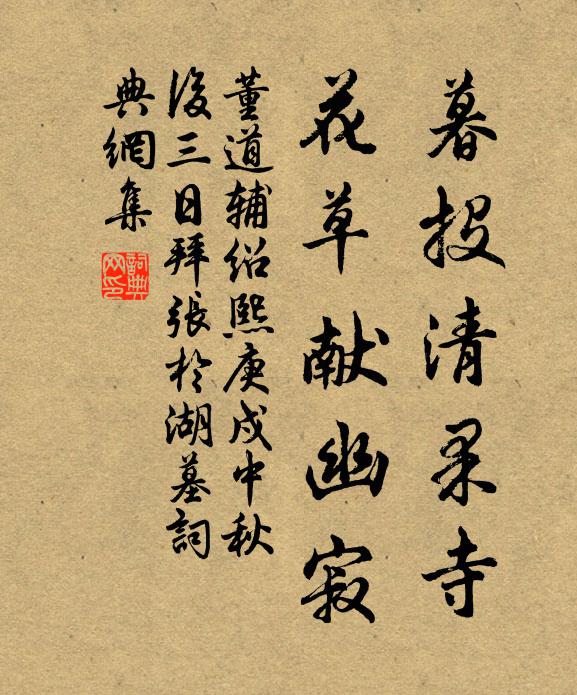 暮投清果寺
花草献幽寂
董道輔紹熙庚戌中秋
後三日拜張於湖墓詞
典網集
詞典
网印